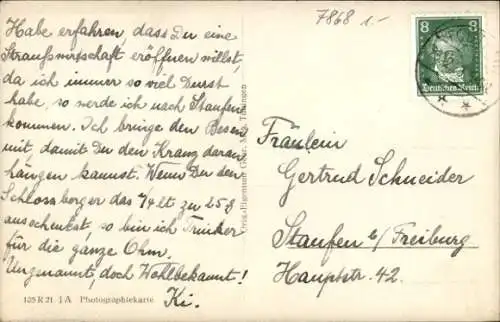 7868 1.-
Habe erfahren, dass Du eine
Straußwirtschaft eröffnen willst,
da ich immer so viel Durst
habe, so werde ich nach Staufen
kommen. Ich bringe den Besen
mit, damit Du den Kranz daran
hängen kannst. Wenn Du den
Schlossberger das 1/4 lt zu 25 ₰
ausschenkst, so bin ich Trinker
für die ganze Ohm.
Ungenannt, doch Wohlbekannt!
Ki.
135 R 21 I A Photographiekarte
8 8
Deutsches Reich
Fräulein
Gertrud Schneider
Staufen b/Freiburg
Hauptstr. 42.